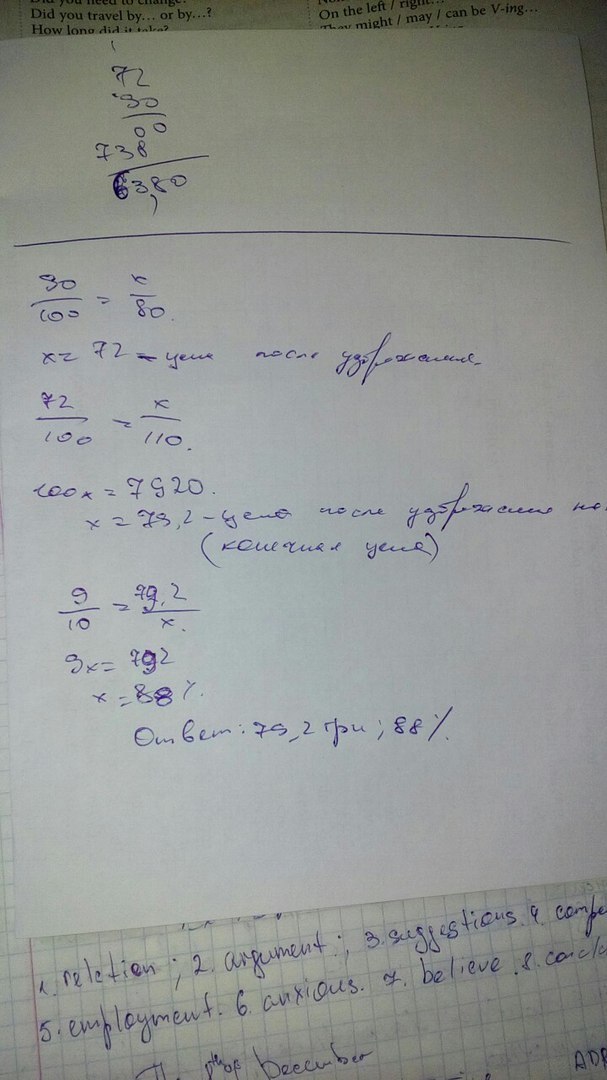 Did you need to change?
Did you travel by... or by...?
How long did it take?
On the left / right...
They might / may / can be V-ing...
72
90
00
738
63,80
90/100 = x/80.
x = 72 – цена после удорожания.
72/100 = x/110.
100x = 7920.
x = 79,2 – цена после удорожания на
(конечная цена)
9/10 = 79,2/x.
9x = 792
x = 88 %.
Ответ: 79,2 грн ; 88 %.
1. relation ; 2. argument. ; 3. suggestions. 4. compe
5. employment. 6. anxious. 7. believe. 8. conclu
December